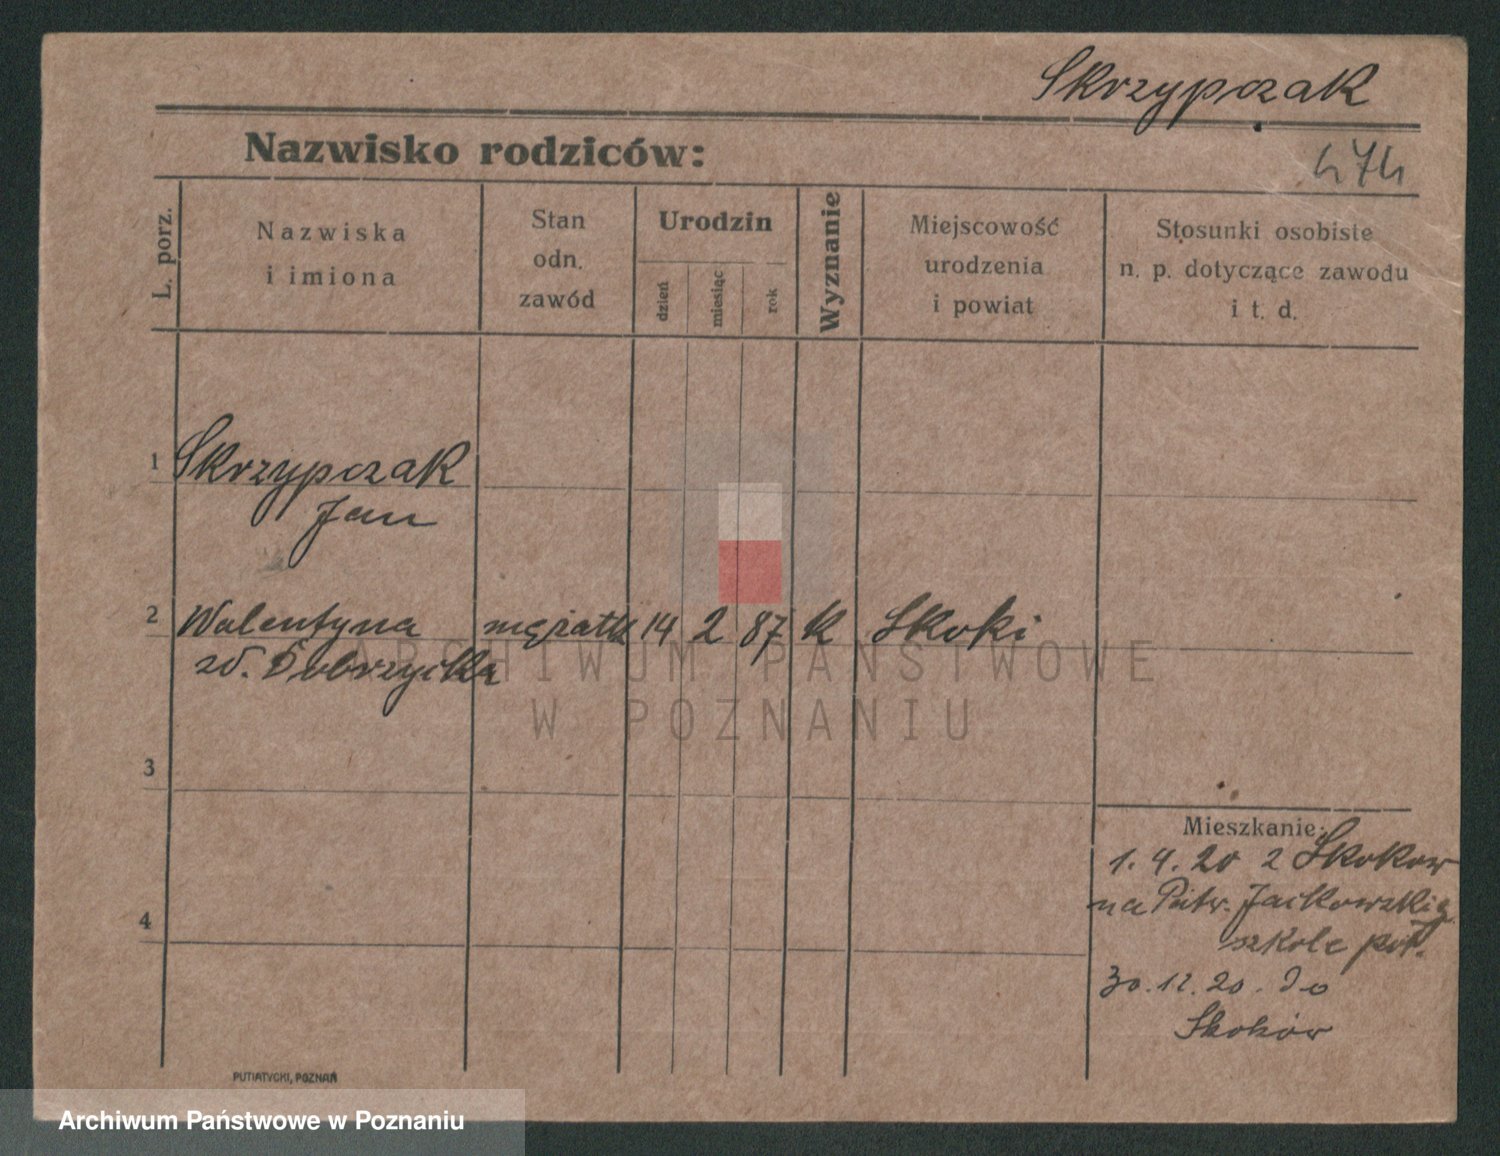 Skrzypczak
Nazwisko rodziców:
474
L. porz.
Nazwiska
i imiona
Stan
odn.
zawód
Urodzin
dzień
miesiąc
rok
Wyznanie
Miejscowość
urodzenia
i powiat
Stosunki osobiste
n. p. dotyczące zawodu
i t. d.
1 Skrzypczak
Jan
2 Walentyna mężatk 14 2 87 k Skoki
zd. Dobrzycka
3
4
Mieszkanie:
1.4.20 z Skokow
na Jackowskieg
szkole
30.12.20. do
Skoków
PUTIATYCKI, POZNAŃ
ARCHIWUM PAŃSTWOWE
W POZNANIU
Archiwum Państwowe w Poznaniu